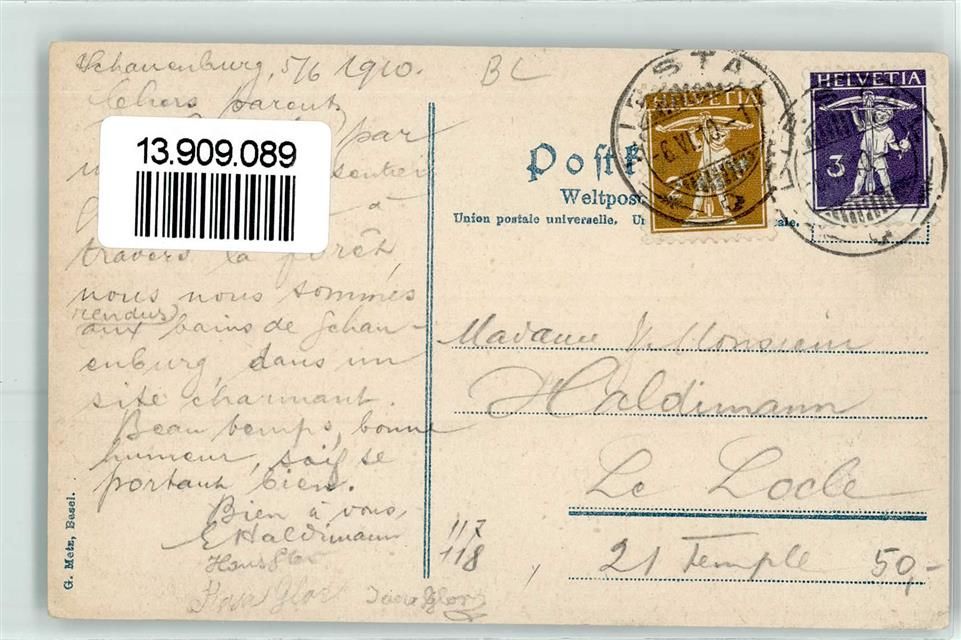 Schauenburg, 5/6 1910.
BL
Chers parents
par
sentier
à
travers la forêt,
nous nous sommes
rendus
aux bains de Schau-
enburg, dans un
site charmant.
Beau temps, bonne
humeur, soif se
portant bien.
Bien à vous,
E Haldimann
Hans
13.909.089
Postk
Weltpos
Union postale universelle. Un
ale.
HELVETIA
HELVETIA
3
LIESTAL
6.VI.10.
Madame & Monsieur
Haldimann
Le Locle
21 Temple
50,-
117
118
G. Metz, Basel.